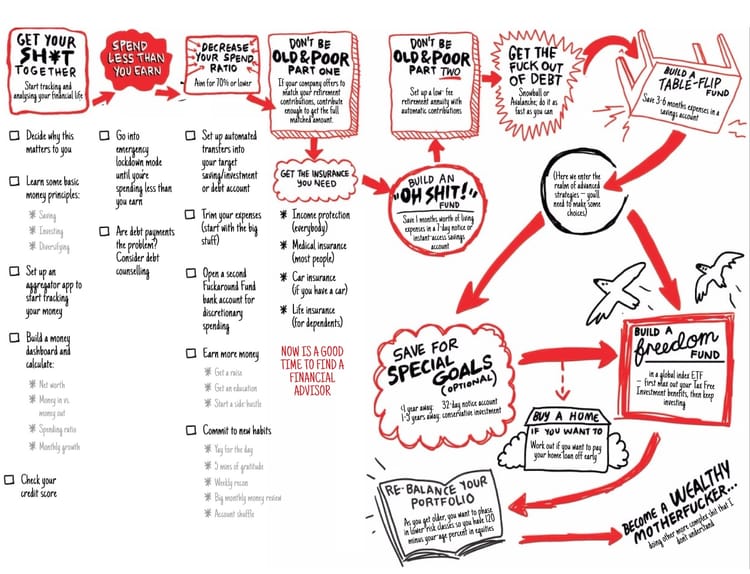 GET YOUR
SH¥T
TOGETHER
Start tracking and
analysing your financial life
Decide why this
matters to you
Learn some basic
money principles:
Saving
Investing
Diversifying
Set up an
aggregator app to
start tracking
your money
Build a money
dashboard and
calculate:
Net worth
Money in vs
money out
Spending ratio
Monthly growth
Check your
credit score
SPEND
LESS THAN
YOU EARN
Go into
emergency
lockdown mode
until you're
spending less than
you earn
Are debt payments
the problem?
Consider debt
counselling
DECREASE
YOUR SPEND
RATIO
Aim for 70% or lower
Set up automated
transfers into
your target
saving/investment
or debt account
Trim your expenses
(start with the big
stuff)
Open a second
Fuckaround Fund
bank account for
discretionary
spending
Earn more money
Get a raise
Get an education
Start a side-hustle
Commit to new habits
Yay for the day
5 mins of gratitude
Weekly recon
Big monthly money review
Account shuffle
DON'T BE
OLD & POOR
PART ONE
If your company offers to
match your retirement
contributions, contribute
enough to get the full
matched amount.
GET THE INSURANCE
YOU NEED
Income protection
(everybody)
Medical insurance
(most people)
Car insurance
(if you have a car)
Life insurance
(for dependents)
NOW IS A GOOD
TIME TO FIND A
FINANCIAL
ADVISOR
BUILD AN
"OH SHIT!"
FUND
Save 1 months worth of living
expenses in a 7-day notice or
instant-access savings
account
DON'T BE
OLD & POOR
PART TWO
Set up a low-fee
retirement annuity with
automatic contributions.
GET THE
FUCK OUT
OF DEBT
Snowball or
Avalanche; do it as
fast as you can
BUILD A
TABLE-FLIP
FUND
Save 3-6 months expenses in a
savings account
(Here we enter the
realm of advanced
strategies – you'll
need to make some
choices)
SAVE FOR
SPECIAL
GOALS
(OPTIONAL)
<1 year away: 32-day notice account
1-3 years away: conservative investment
BUY A HOME
IF YOU WANT TO
Work out if you want to pay
your home loan off early
BUILD A
freedom
FUND
in a global index ETF
– first max out your Tax Free
Investment benefits, then keep
investing
RE-BALANCE YOUR
PORTFOLIO
As you get older, you want to phase
in lower risk classes so you have 120
minus your age percent in equities
BECOME A WEALTHY
MOTHERFUCKER...
doing other more complex shit that I
don't understand